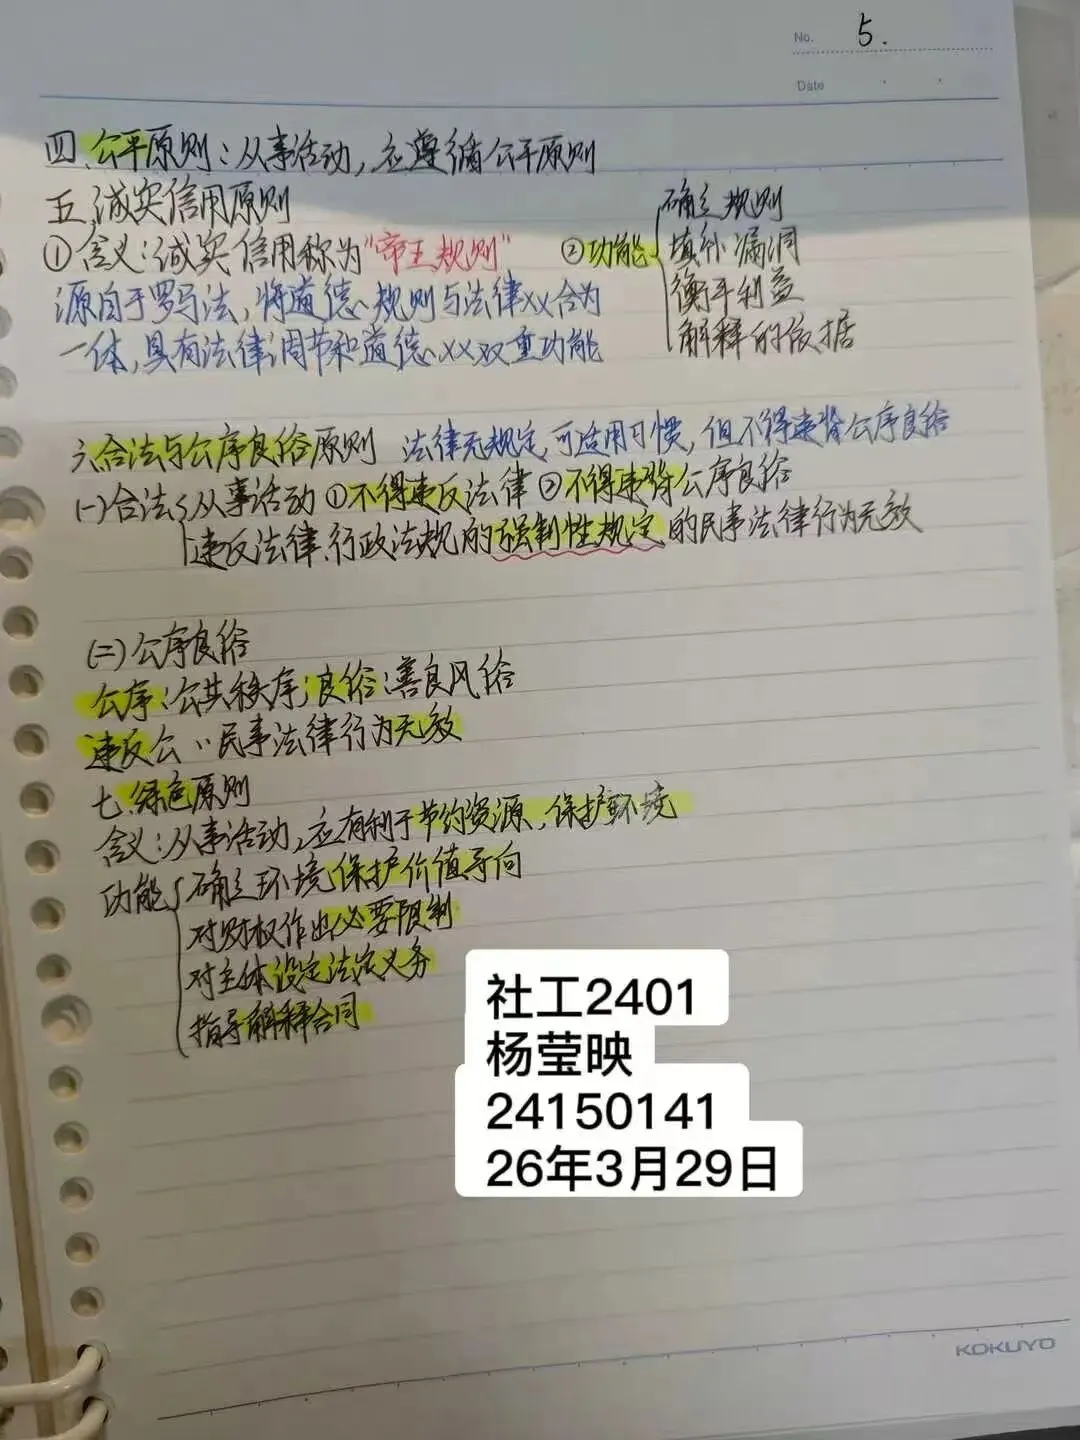 No. 5.
Date
四、公平原则：从事活动，应遵循公平原则
五、诚实信用原则
①含义：诚实信用称为“帝王规则”
源自于罗马法，将道德规则与法律××合为
一体，具有法律调节和道德××双重功能
②功能
确立规则
填补漏洞
衡平利益
解释的依据
六、合法与公序良俗原则 法律无规定，可适用习惯，但不得违背公序良俗
(一)合法 从事活动①不得违反法律②不得违背公序良俗
违反法律、行政法规的强制性规定的民事法律行为无效
(二)公序良俗
公序：公共秩序；良俗：善良风俗
违反公〃民事法律行为无效
七、绿色原则
含义：从事活动，应有利于节约资源、保护环境
功能 确立环境保护价值导向
对财权作出必要限制
对主体设定法定义务
指导解释合同
社工2401
杨莹映
24150141
26年3月29日
KOKUYO